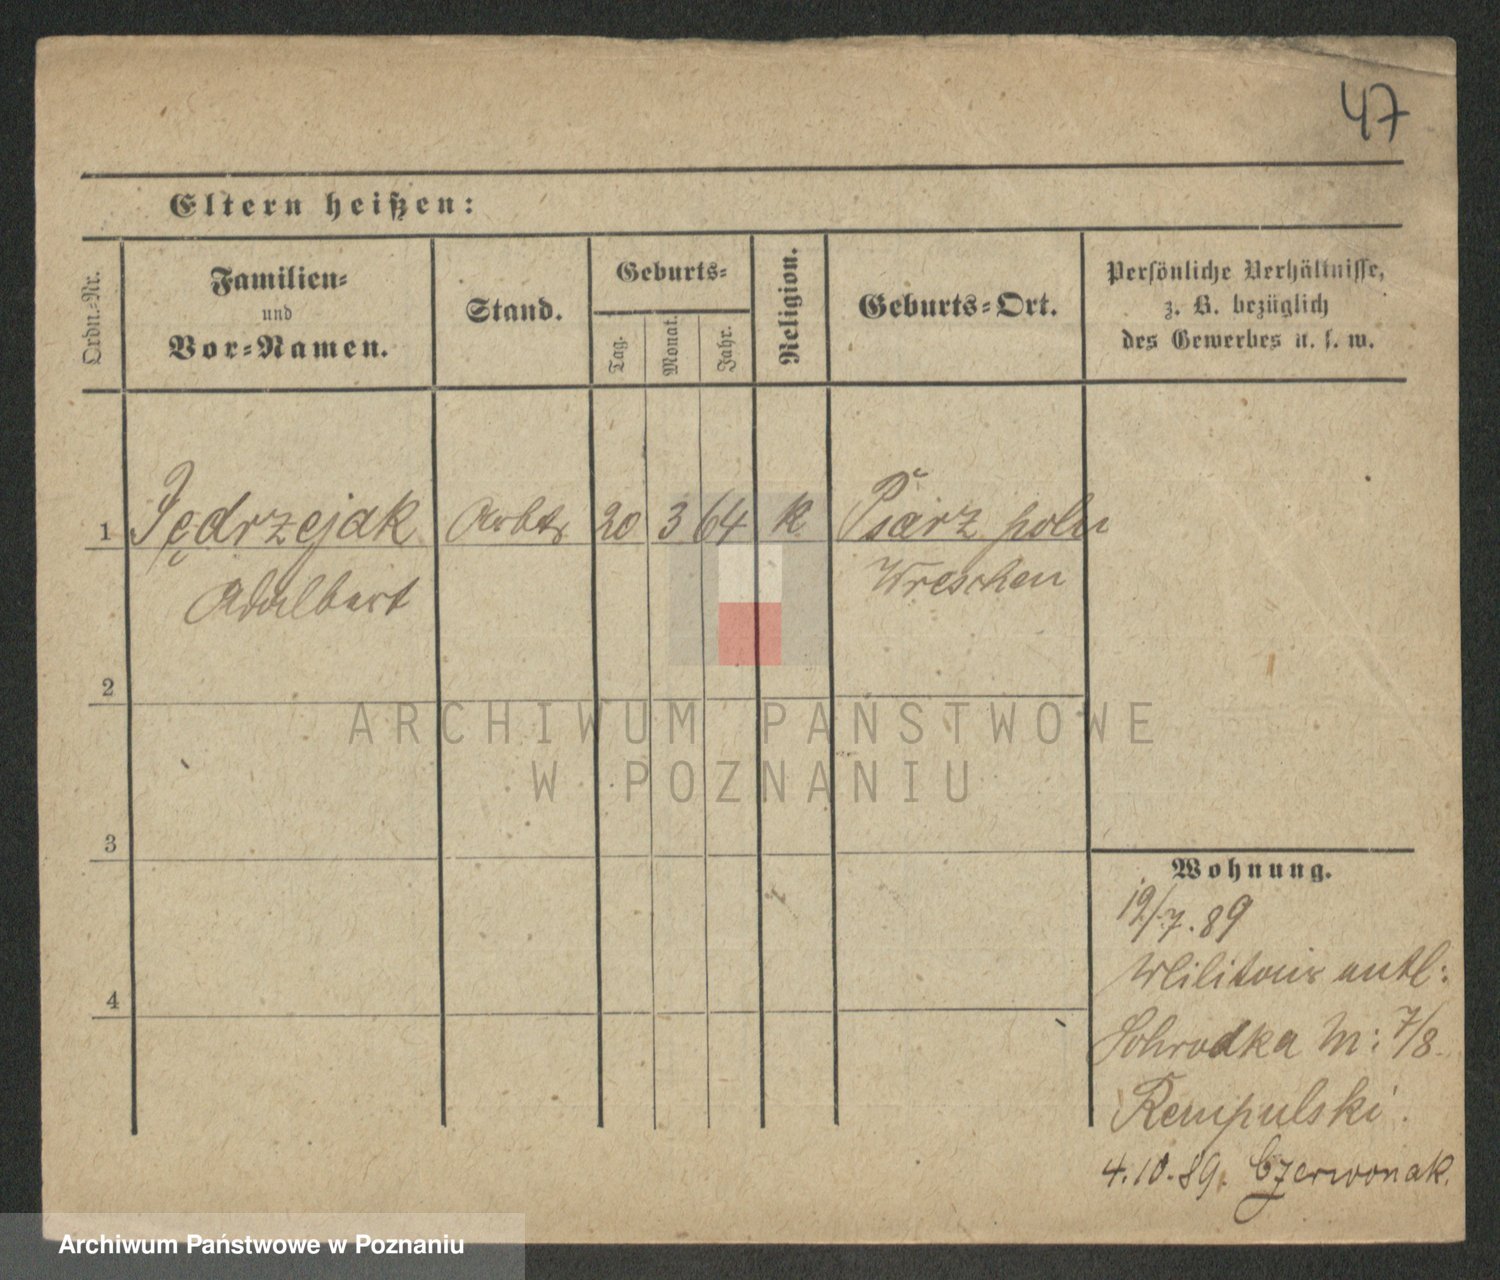 47
Eltern heißen:
Ordn.-Nr.
Familien-
und
Vor-Namen.
Stand.
Geburts-
Tag.
Monat.
Jahr.
Religion.
Geburts-Ort.
Persönliche Verhältnisse,
z. B. bezüglich
des Gewerbes u. s. w.
1 Jędrzejak Arbtr 20 3 64 k Psarz poln
Adalbert Wreschen
2
ARCHIWUM PAŃSTWOWE
W POZNANIU
3
Wohnung.
19/7.89
Militair entl:
Schrodka M: 7/8
Rempulski.
4
4.10.89. Czerwonak.
Archiwum Państwowe w Poznaniu